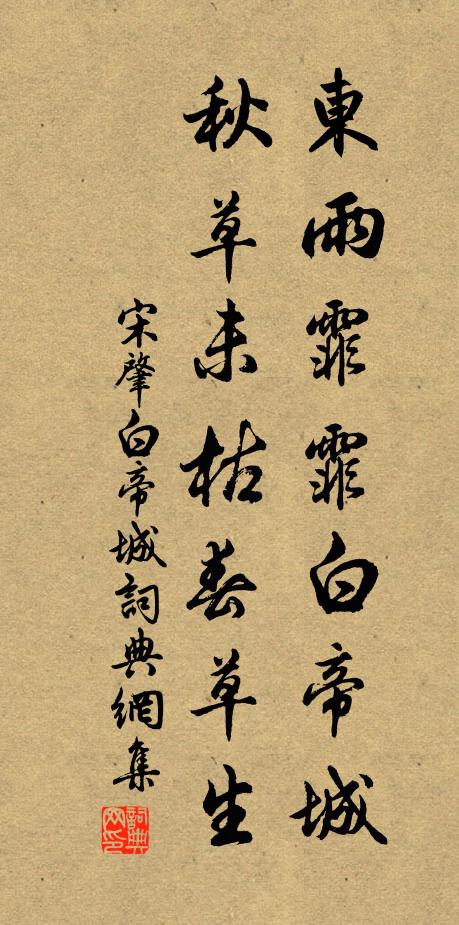 東雨霏霏白帝城
秋草未枯春草生
宋肇白帝城詞典網集
詞典网印